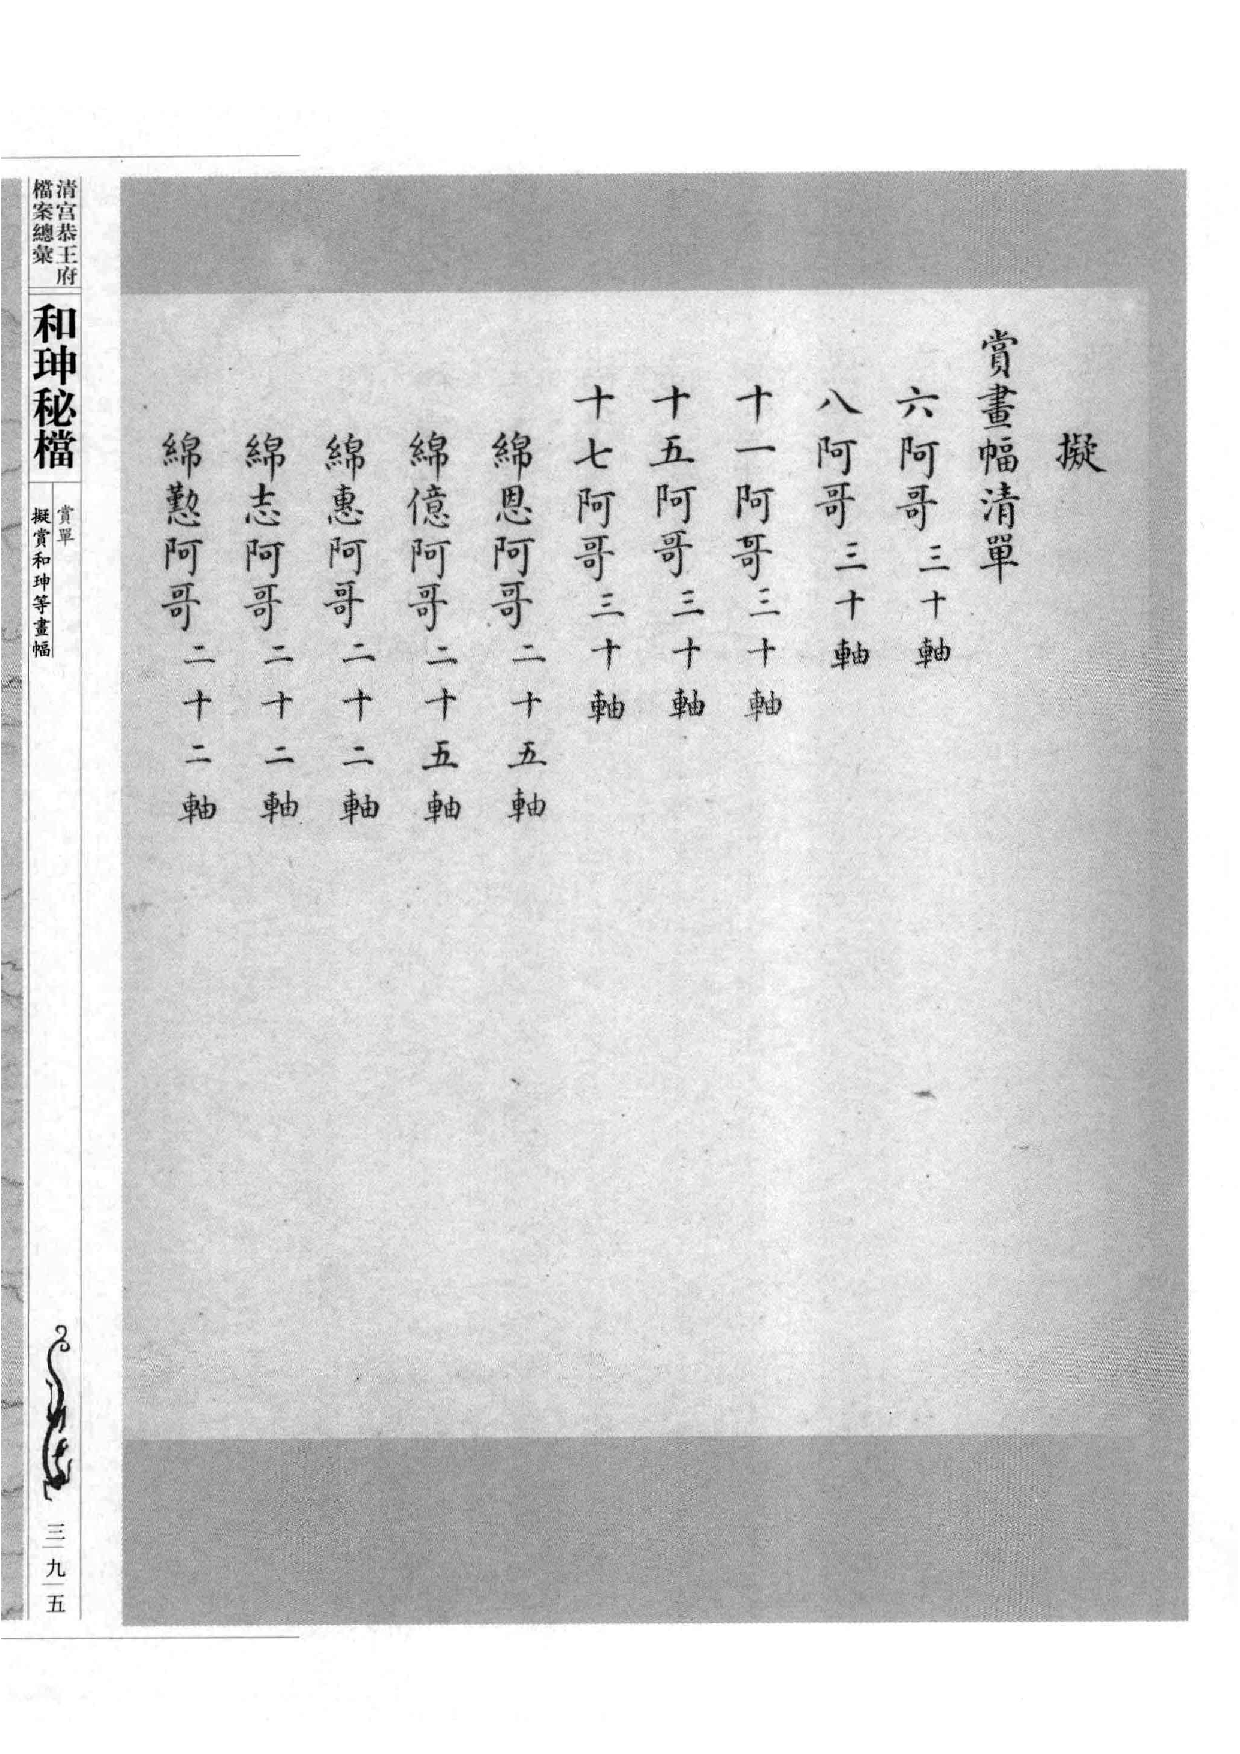 擬
賞畫幅清單
六阿哥三十軸
八阿哥三十軸
十一阿哥三十軸
十五阿哥三十軸
十七阿哥三十軸
綿恩阿哥二十五軸
綿億阿哥二十五軸
綿惠阿哥二十二軸
綿志阿哥二十二軸
綿懃阿哥二十二軸
清宫恭王府
檔案總彙
和珅秘檔
賞單
擬賞和珅等畫幅
三九五